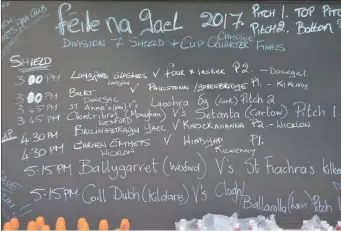 féile na gael 2017. PITCH 1. TOP PITCH
PITCH 2. Bottom
DIVISION 7 SHIELD + CUP CAMOGIE QUARTER FINALS
SHIELD
3 00 PM LONGFORD SLASHERS V four masters P2. - Donegal
LONGFORD
3 00 PM BURT V PAULSTOWN/GORESBRIDGE P1. - Kilkenny
Donegal
3 45 PM St Anne's V Laochra Óg (Cork) Pitch 2
3 45 PM Clontibret (Monaghan) V's Setanta (Carlow) Pitch 1
WEXFORD
4.30 PM BALLINASTRAGH GAEL V KNOCKANANNA P2 - WICKLOW
4.30 PM CARNEW EMMETS V WINDGAP P1.
WICKLOW KILKENNY
5.15 PM Ballygarret (Wexford) V's St Fiachras Kilkenny
5.15 PM Coill Dubh (Kildare) V's Clogh/
Ballacolla (Laois) Pitch